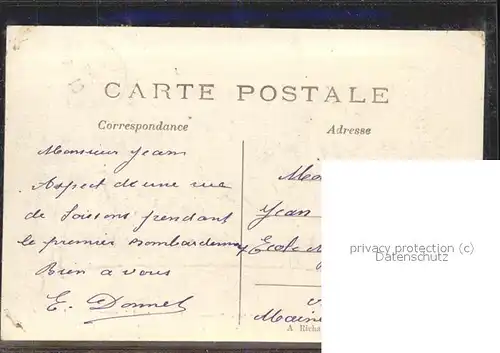 CARTE POSTALE
Correspondance
Adresse
Monsieur Jean
Aspect de une rue
de Soissons pendant
le premier Bombardem
Bien a vous
E. Donnet
Mo
Jean
Ecole
Maine
A Richa
privacy protection (c)
Datenschutz